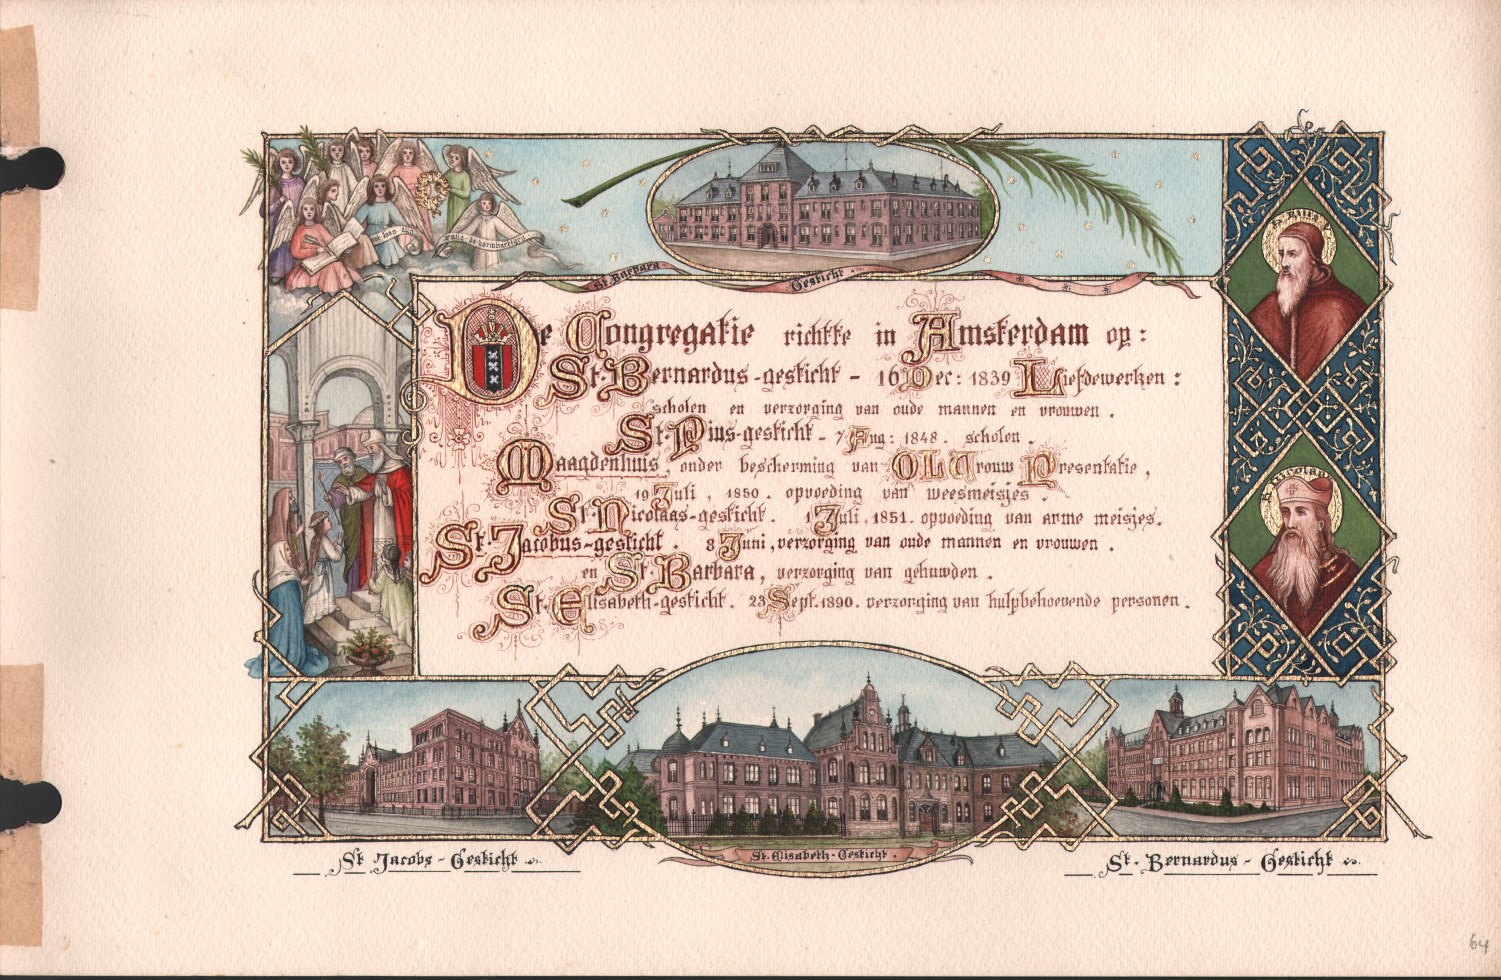 St. Barbara Gesticht
S. Pius V
De Congregatie richtte in Amsterdam op:
St. Bernardus-gesticht - 16 Dec: 1839 Liefdewerken:
scholen en verzorging van oude mannen en vrouwen.
St. Pius-gesticht - 7 Aug: 1848. scholen.
Maagdenhuis, onder bescherming van O L Vrouw Presentatie,
19 Juli, 1850. opvoeding van weesmeisjes.
St. Nicolaas-gesticht. 1 Juli, 1851. opvoeding van arme meisjes.
St. Jacobus-gesticht. 8 Juni, verzorging van oude mannen en vrouwen.
en St. Barbara, verzorging van gehuwden.
St. Elisabeth-gesticht. 23 Sept. 1890. verzorging van hulpbehoevende personen.
St. Jacobs-Gesticht
St. Elisabeth-Gesticht.
St. Bernardus-Gesticht
64